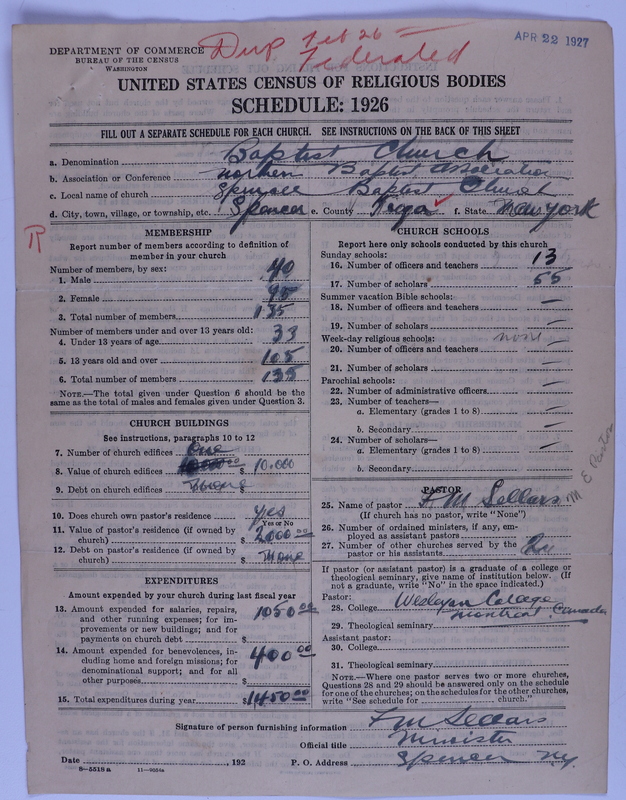 APR 22 1927
Dup Feb 26
Federated
DEPARTMENT OF COMMERCE
BUREAU OF THE CENSUS
WASHINGTON
UNITED STATES CENSUS OF RELIGIOUS BODIES
SCHEDULE: 1926
FILL OUT A SEPARATE SCHEDULE FOR EACH CHURCH. SEE INSTRUCTIONS ON THE BACK OF THIS SHEET
a. Denomination Baptist Church
b. Association or Conference Northern Baptist Association
c. Local name of church Baptist Church
d. City, town, village, or township, etc. Spencer e. County Tioga f. State New York
R
MEMBERSHIP
Report number of members according to definition of member in your church
Number of members, by sex:
1. Male 40
2. Female 95
3. Total number of members 135
Number of members under and over 13 years old:
4. Under 13 years of age 33
5. 13 years old and over 105
6. Total number of members 135
NOTE.—The total given under Question 6 should be the same as the total of males and females given under Question 3.
CHURCH BUILDINGS
See instructions, paragraphs 10 to 12
7. Number of church edifices One
8. Value of church edifices $ 10.000
9. Debt on church edifices $ None
10. Does church own pastor's residence? Yes
Yes or No
11. Value of pastor's residence (if owned by church) $ 2000.00
12. Debt on pastor's residence (if owned by church) $ None
EXPENDITURES
Amount expended by your church during last fiscal year
13. Amount expended for salaries, repairs, and other running expenses; for improvements or new buildings; and for payments on church debt $ 1050.00
14. Amount expended for benevolences, including home and foreign missions; for denominational support; and for all other purposes $ 400.00
15. Total expenditures during year $ 1450.00
CHURCH SCHOOLS
Report here only schools conducted by this church
Sunday schools:
16. Number of officers and teachers 13
17. Number of scholars 55
Summer vacation Bible schools:
18. Number of officers and teachers —
19. Number of scholars —
Week-day religious schools: none
20. Number of officers and teachers —
21. Number of scholars —
Parochial schools:
22. Number of administrative officers —
23. Number of teachers—
a. Elementary (grades 1 to 8) —
b. Secondary —
24. Number of scholars—
a. Elementary (grades 1 to 8) —
b. Secondary —
PASTOR
25. Name of pastor F M Sellars
(If church has no pastor, write "None")
M E Pastor
26. Number of ordained ministers, if any, employed as assistant pastors
27. Number of other churches served by the pastor or his assistants One
If pastor (or assistant pastor) is a graduate of a college or theological seminary, give name of institution below. (If not a graduate, write "No" in the space indicated.)
Pastor:
28. College Wesleyan College
29. Theological seminary Montreal Canada
Assistant pastor:
30. College
31. Theological seminary
NOTE.—Where one pastor serves two or more churches, Questions 28 and 29 should be answered only on the schedule for one of the churches; on the schedules for the other churches, write "See schedule for church."
Signature of person furnishing information F M Sellars
Official title Minister
Date , 192 P. O. Address Spencer N.Y.
8—5518 a 11—9054a